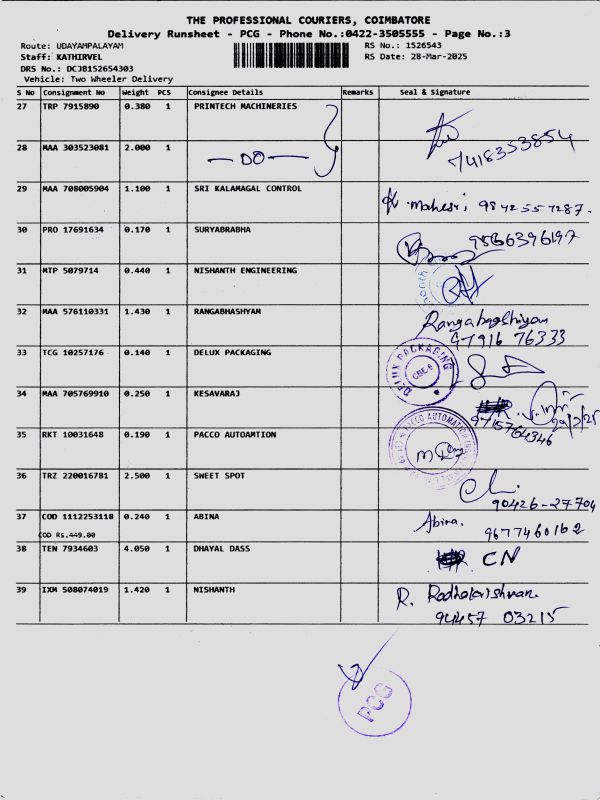 THE PROFESSIONAL COURIERS, COIMBATORE
Delivery Runsheet - PCG - Phone No.:0422-3505555 - Page No.:3
Route: UDAYAMPALAYAM RS No.: 1526543
Staff: KATHIRVEL RS Date: 28-Mar-2025
DRS No.: DCJB152654303
Vehicle: Two Wheeler Delivery
S No Consignment No Weight PCS Consignee Details Remarks Seal & Signature
27 TRP 7915890 0.380 1 PRINTECH MACHINERIES
7418353854
28 MAA 303523081 2.000 1 DO
29 MAA 708005904 1.100 1 SRI KALAMAGAL CONTROL
K. Mahesri, 9842557287.
30 PRO 17691634 0.170 1 SURYABRABHA
9566396197
31 MTP 5079714 0.440 1 NISHANTH ENGINEERING
32 MAA 576110331 1.430 1 RANGABHASHYAM
Rangabagshiyam
97916 76333
33 TCG 10257176 0.140 1 DELUX PACKAGING
DELUX PACKAGING
CBE-6
34 MAA 705769910 0.250 1 KESAVARAJ
9715764346
29/3/25
35 RKT 10031648 0.190 1 PACCO AUTOAMTION
PACCO AUTOMATION
36 TRZ 220016781 2.500 1 SWEET SPOT
90426-27704
37 COD 1112253118 0.240 1 ABINA
Abira.
9677460162
COD Rs.449.00
38 TEN 7934603 4.050 1 DHAYAL DASS
CN
39 IXM 508074019 1.420 1 NISHANTH
R. Radhakrishnan.
94457 03215
PCG